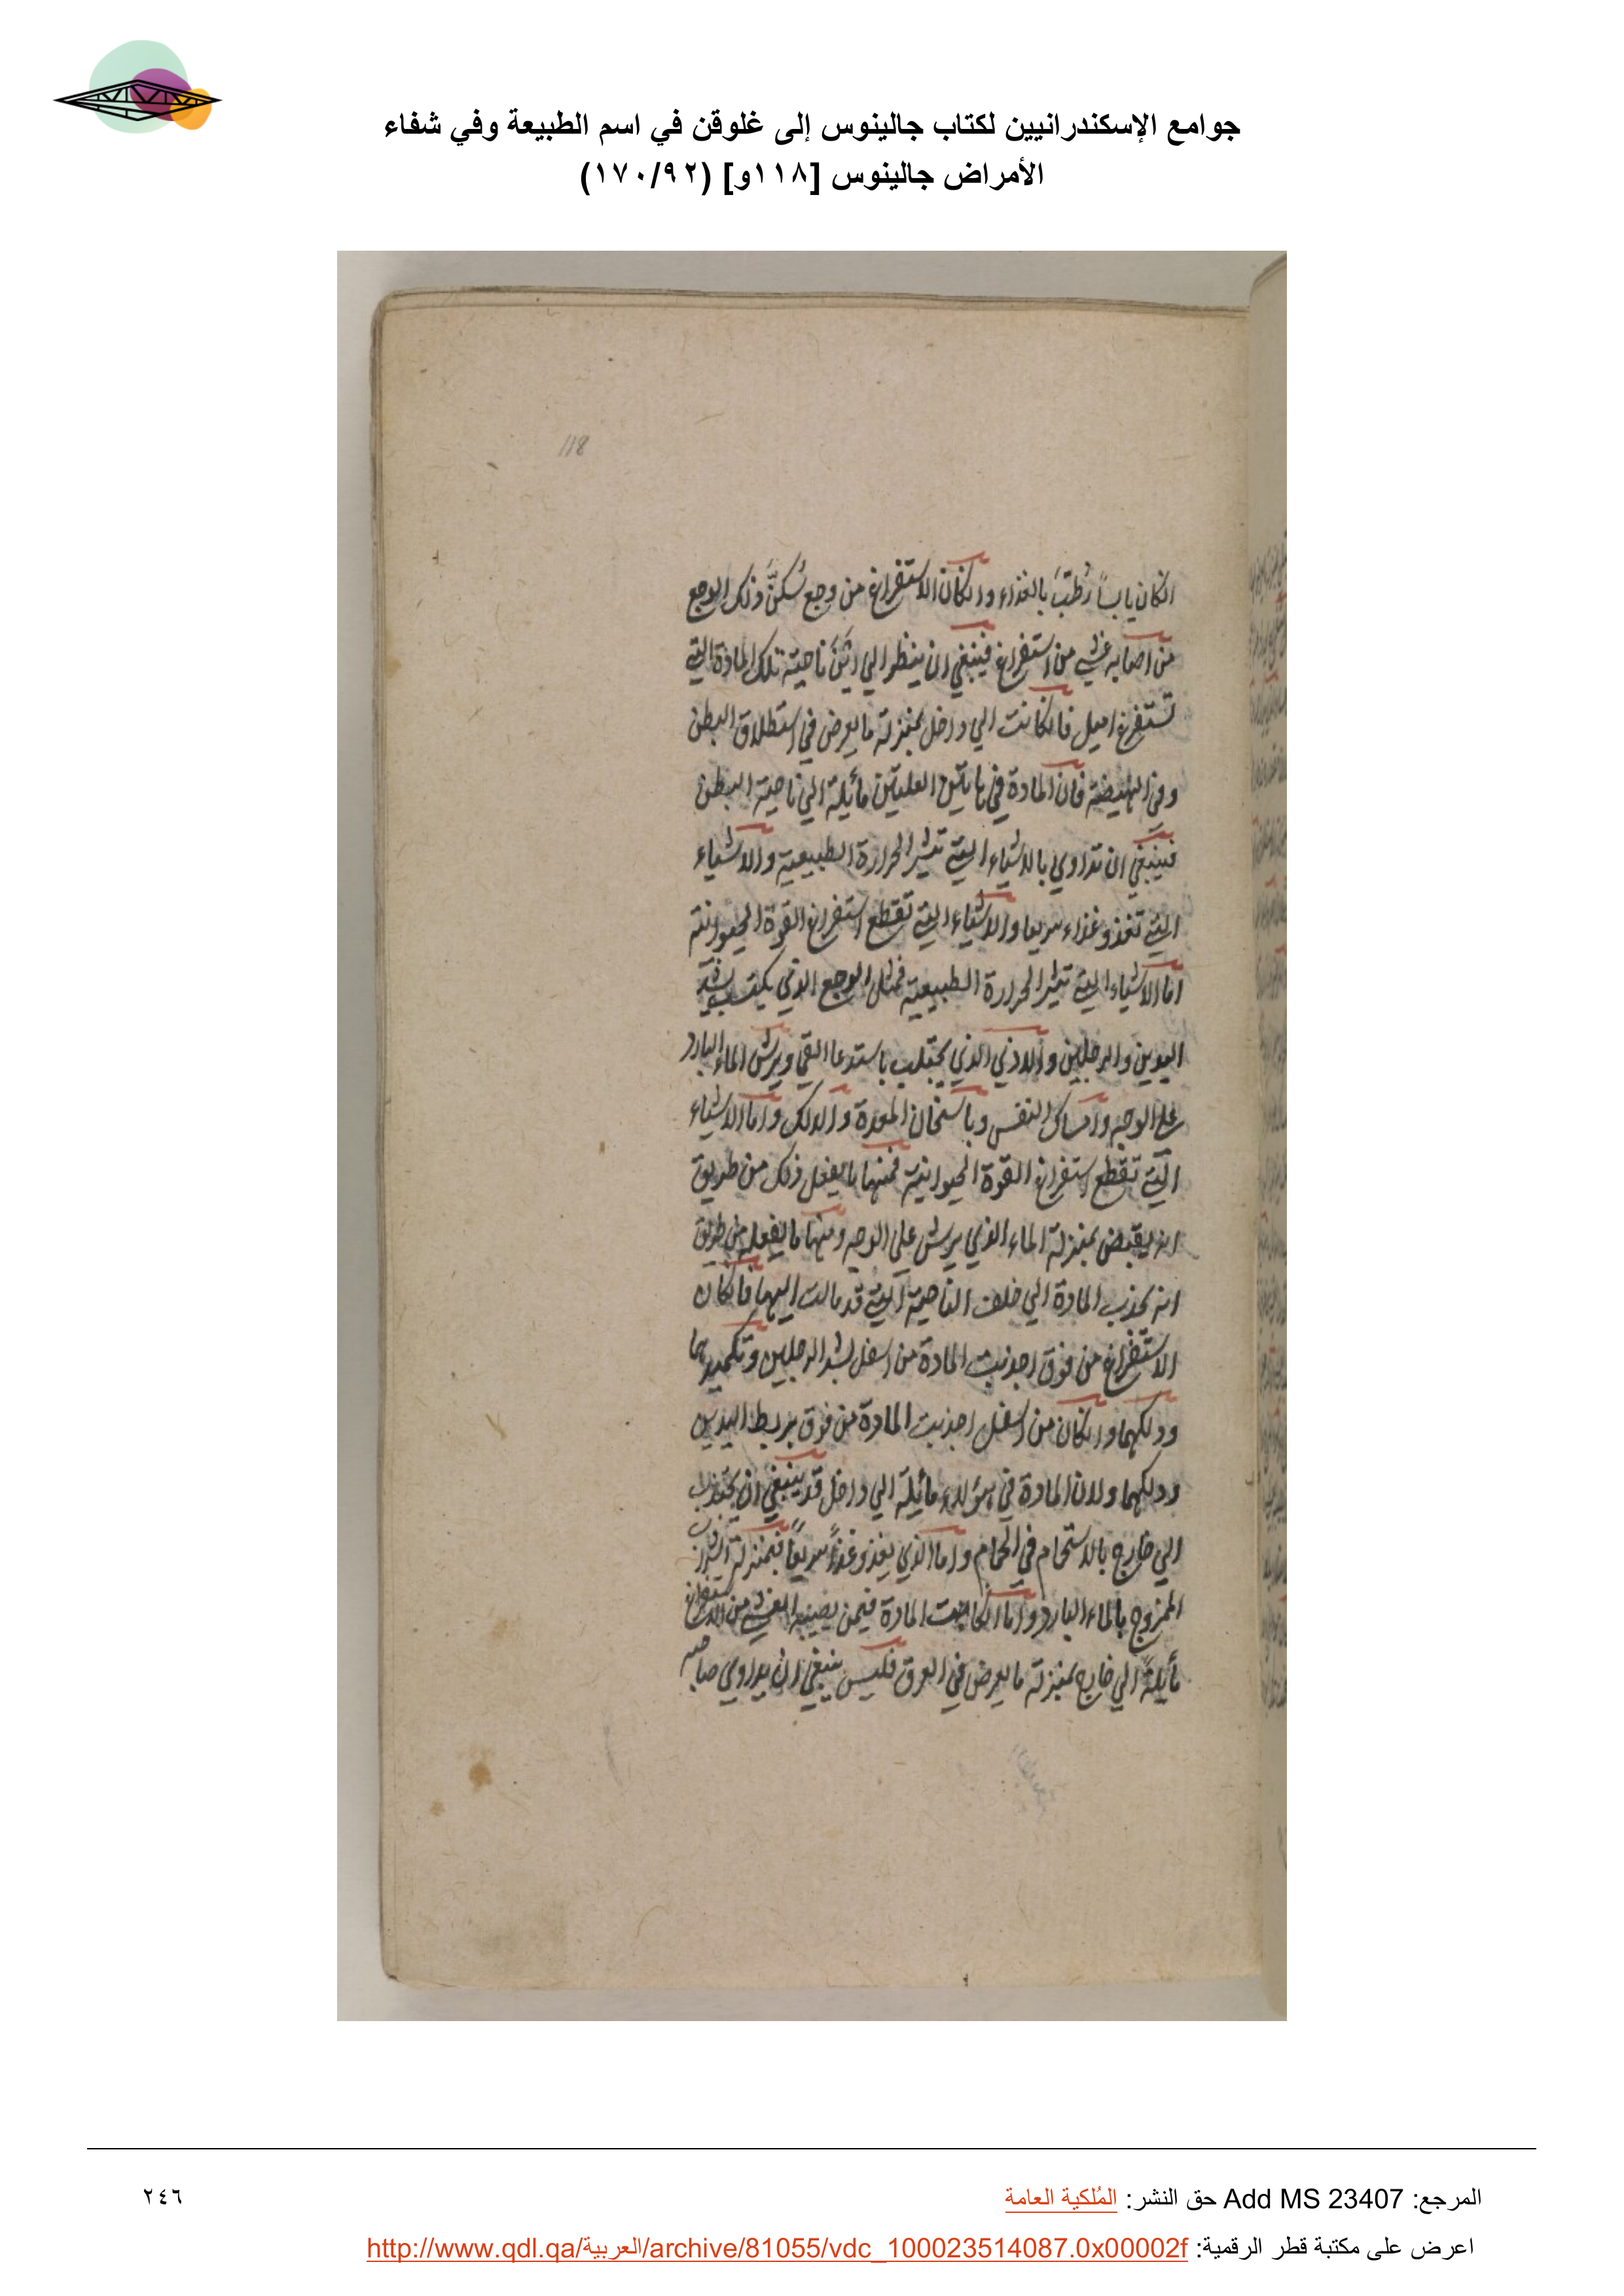 جوامع الإسكندرانيين لكتاب جالينوس إلى غلوقن في اسم الطبيعة وفي شفاء
الأمراض جالينوس [١١٨و] (١٧٠/٩٢)
118
انكان يابساً رُطّبَ بالغذاء وانكان الاستفراغ من وجع سُكّنَ ذلك الوجع
من اصابه غشي من استفراغ فينبغي ان ينظر الي ايّ ناحيته تلك المادة التي
تستفرغ اميل فانكانت الي داخل بمنزلة ما يعرض في استطلاق البطن
وفي الهيضة فان المادة في هاتين العلتين مائلة الي ناحية البطن
فينبغي ان تداوي بالاشياء التي تثير الحرارة الطبيعية والاشياء
التي تغذو غذاء سريعا والاشياء التي تقطع استفراغ القوة الحيوانية
اما الاشياء التي تثير الحرارة الطبيعية فمثل الوجع الذي يكتسب
اليدين والرجلين والاذي الذي يجتلب باستدعا القي وبرش الماء البارد
علي الوجه وامساك النفس وباسخان المعدة والدلك واما الاشياء
التي تقطع استفراغ القوة الحيوانية فمنها ما يفعل ذلك من طريق
انه يقبض بمنزلة الماء الذي يرش علي الوجه ومنها ما يفعله من طريق
انه يجذب المادة الي خلف الناحية التي قد مالت اليها فانكان
الاستفراغ من فوق اجذبت المادة من اسفل بشد الرجلين وتكميدهما
ودلكهما وانكان من اسفل اجذبت المادة من فوق بربط اليدين
ودلكهما ولان المادة في هؤلاء مائلة الي داخل قد ينبغي ان يجتذب
الي خارج بالاستحمام في الحمام واما الذي يغذو غذاءً سريعاً فبمنزلة الشراب
الممزوج بالماء البارد واما انكانت المادة فيمن يصيبه الغشي من الاستفراغ
مائلةً الي خارج بمنزلة ما يعرض في العرق فليس ينبغي ان يداوي صاحبه
المرجع: Add MS 23407 حق النشر: المُلكية العامة
٢٤٦
اعرض على مكتبة قطر الرقمية: http://www.qdl.qa/العربية/archive/81055/vdc_100023514087.0x00002f